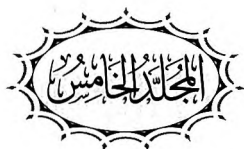 المُجَلَّدُ الخَامِسُ